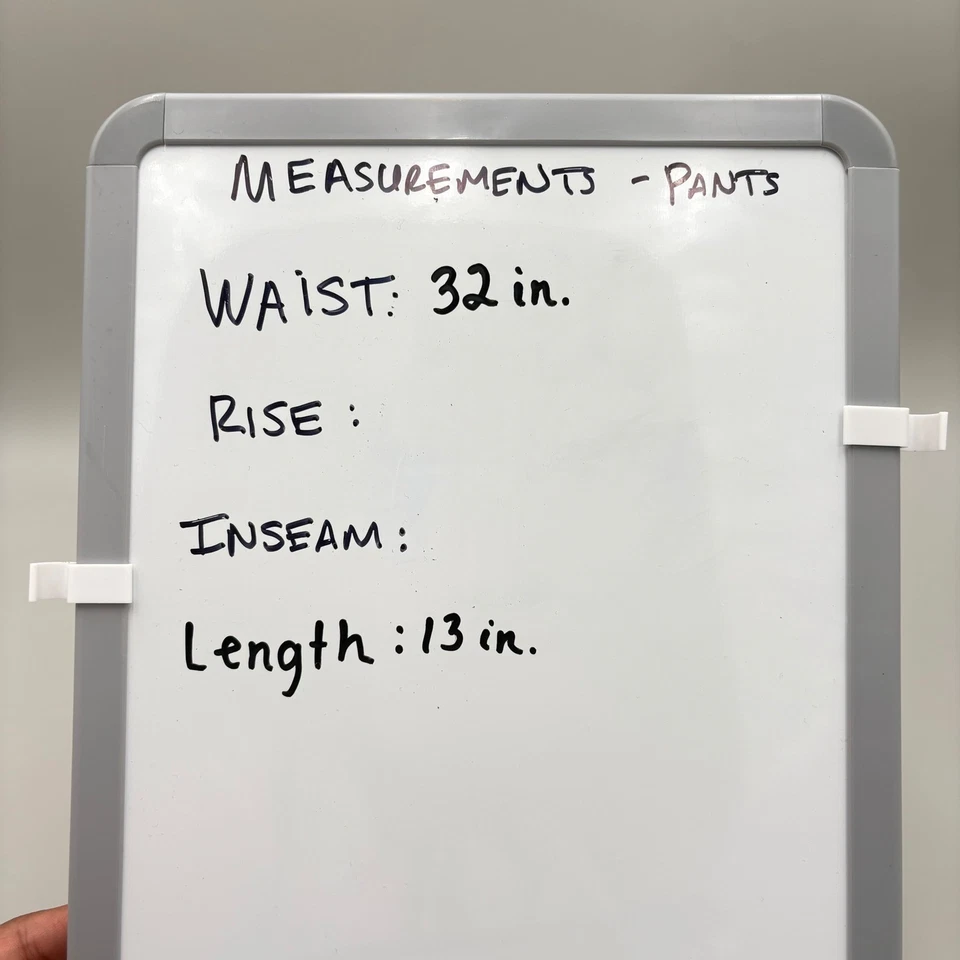 MEASUREMENTS - PANTS
WAIST: 32 in.
RISE :
INSEAM :
Length : 13 in.